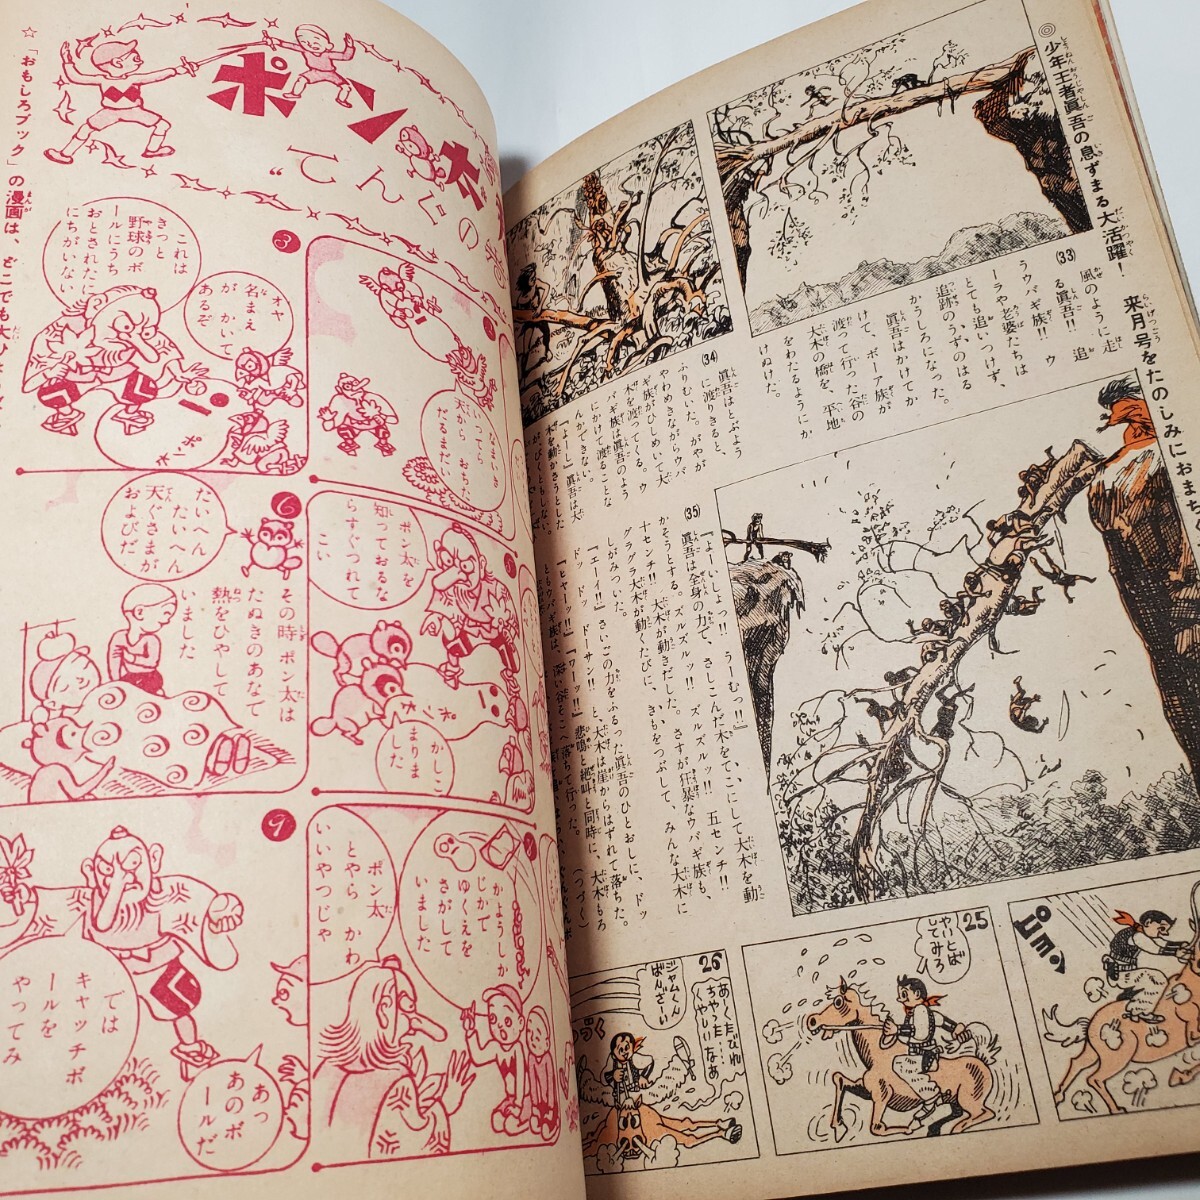 ◎少年王者眞吾の息ずまる大活躍!
来月号をたのしみにおまち
(33)
風のように走
る眞吾!! 追
うウバギ族!! ウ
ーラや老婆たちは
とても追いつけず、
追跡のうずのはる
かうしろになった。
眞吾はかけてか
けて、ボーア族が
渡って行った谷の
大木の橋を、平地
をわたるようにか
けぬけた。
(34)
眞吾はとぶよう
に渡りきると、
ふりむいた。がやが
やわめきながらウバ
ギ族がひしめいて大
木を渡ってくる。ウ
バギ族は眞吾のよう
にかけて渡ることな
んかできない。
『よしし』眞吾は大
木を動かさうとした
がびくともしない。
(35)
『よーしよっ!! うーむっ!!』
眞吾は全身の力で、さしこんだ木をてこにして大木を動
かそうとする。ズルズルッ!! ズルズルッ!! 五センチ!!
十センチ!! 大木が動きだした。さすが狂暴なウバギ族も、
グラグラ大木が動くたびに、きもをつぶして、みんな大木に
しがみついた。
『エーイ!!』さいごの力をふるった眞吾のひとおしに、ドッ
ドッ ドッ ドッサン!! と、大木は崖からはずれて落ちた。
『ヒャーッ!!』『ワーッ!!』悲鳴と絶叫と同時に、大木もろ
ともウバギ族は、深い谷そこへ落ちて行った。
(つづく)
ピョン
25
やいとば
してみろ
26
ジャムくん
ばんざーい
あ、くたびれ
ちゃった……
くやしいなあ
☆「おもしろブック」の漫画は、どこでも大ひ
ポン太
てんぐの
なまいき
いってら
天から おちた
だるまだい
3
これは
きっと
野球のボ
ールにうち
おとされたに
ちがいない
オヤ
名まえ
が かいて
あるぞ
ポン
ポン太を
知っておるな
らすぐつれて
こい
かしこ
まりま
した
ポンポ
6
たいへん
たいへん
天ぐさまが
およびだが
その時ポン太は
たぬきのあなで
熱をひやして
いました
かようしか
じかで
ゆくえを
さがして
いました
ポン太
とやら かわ
いいやつじゃ
9
では
キャッチボ
ールを
やってみ
あっ
あのボ
ールだ